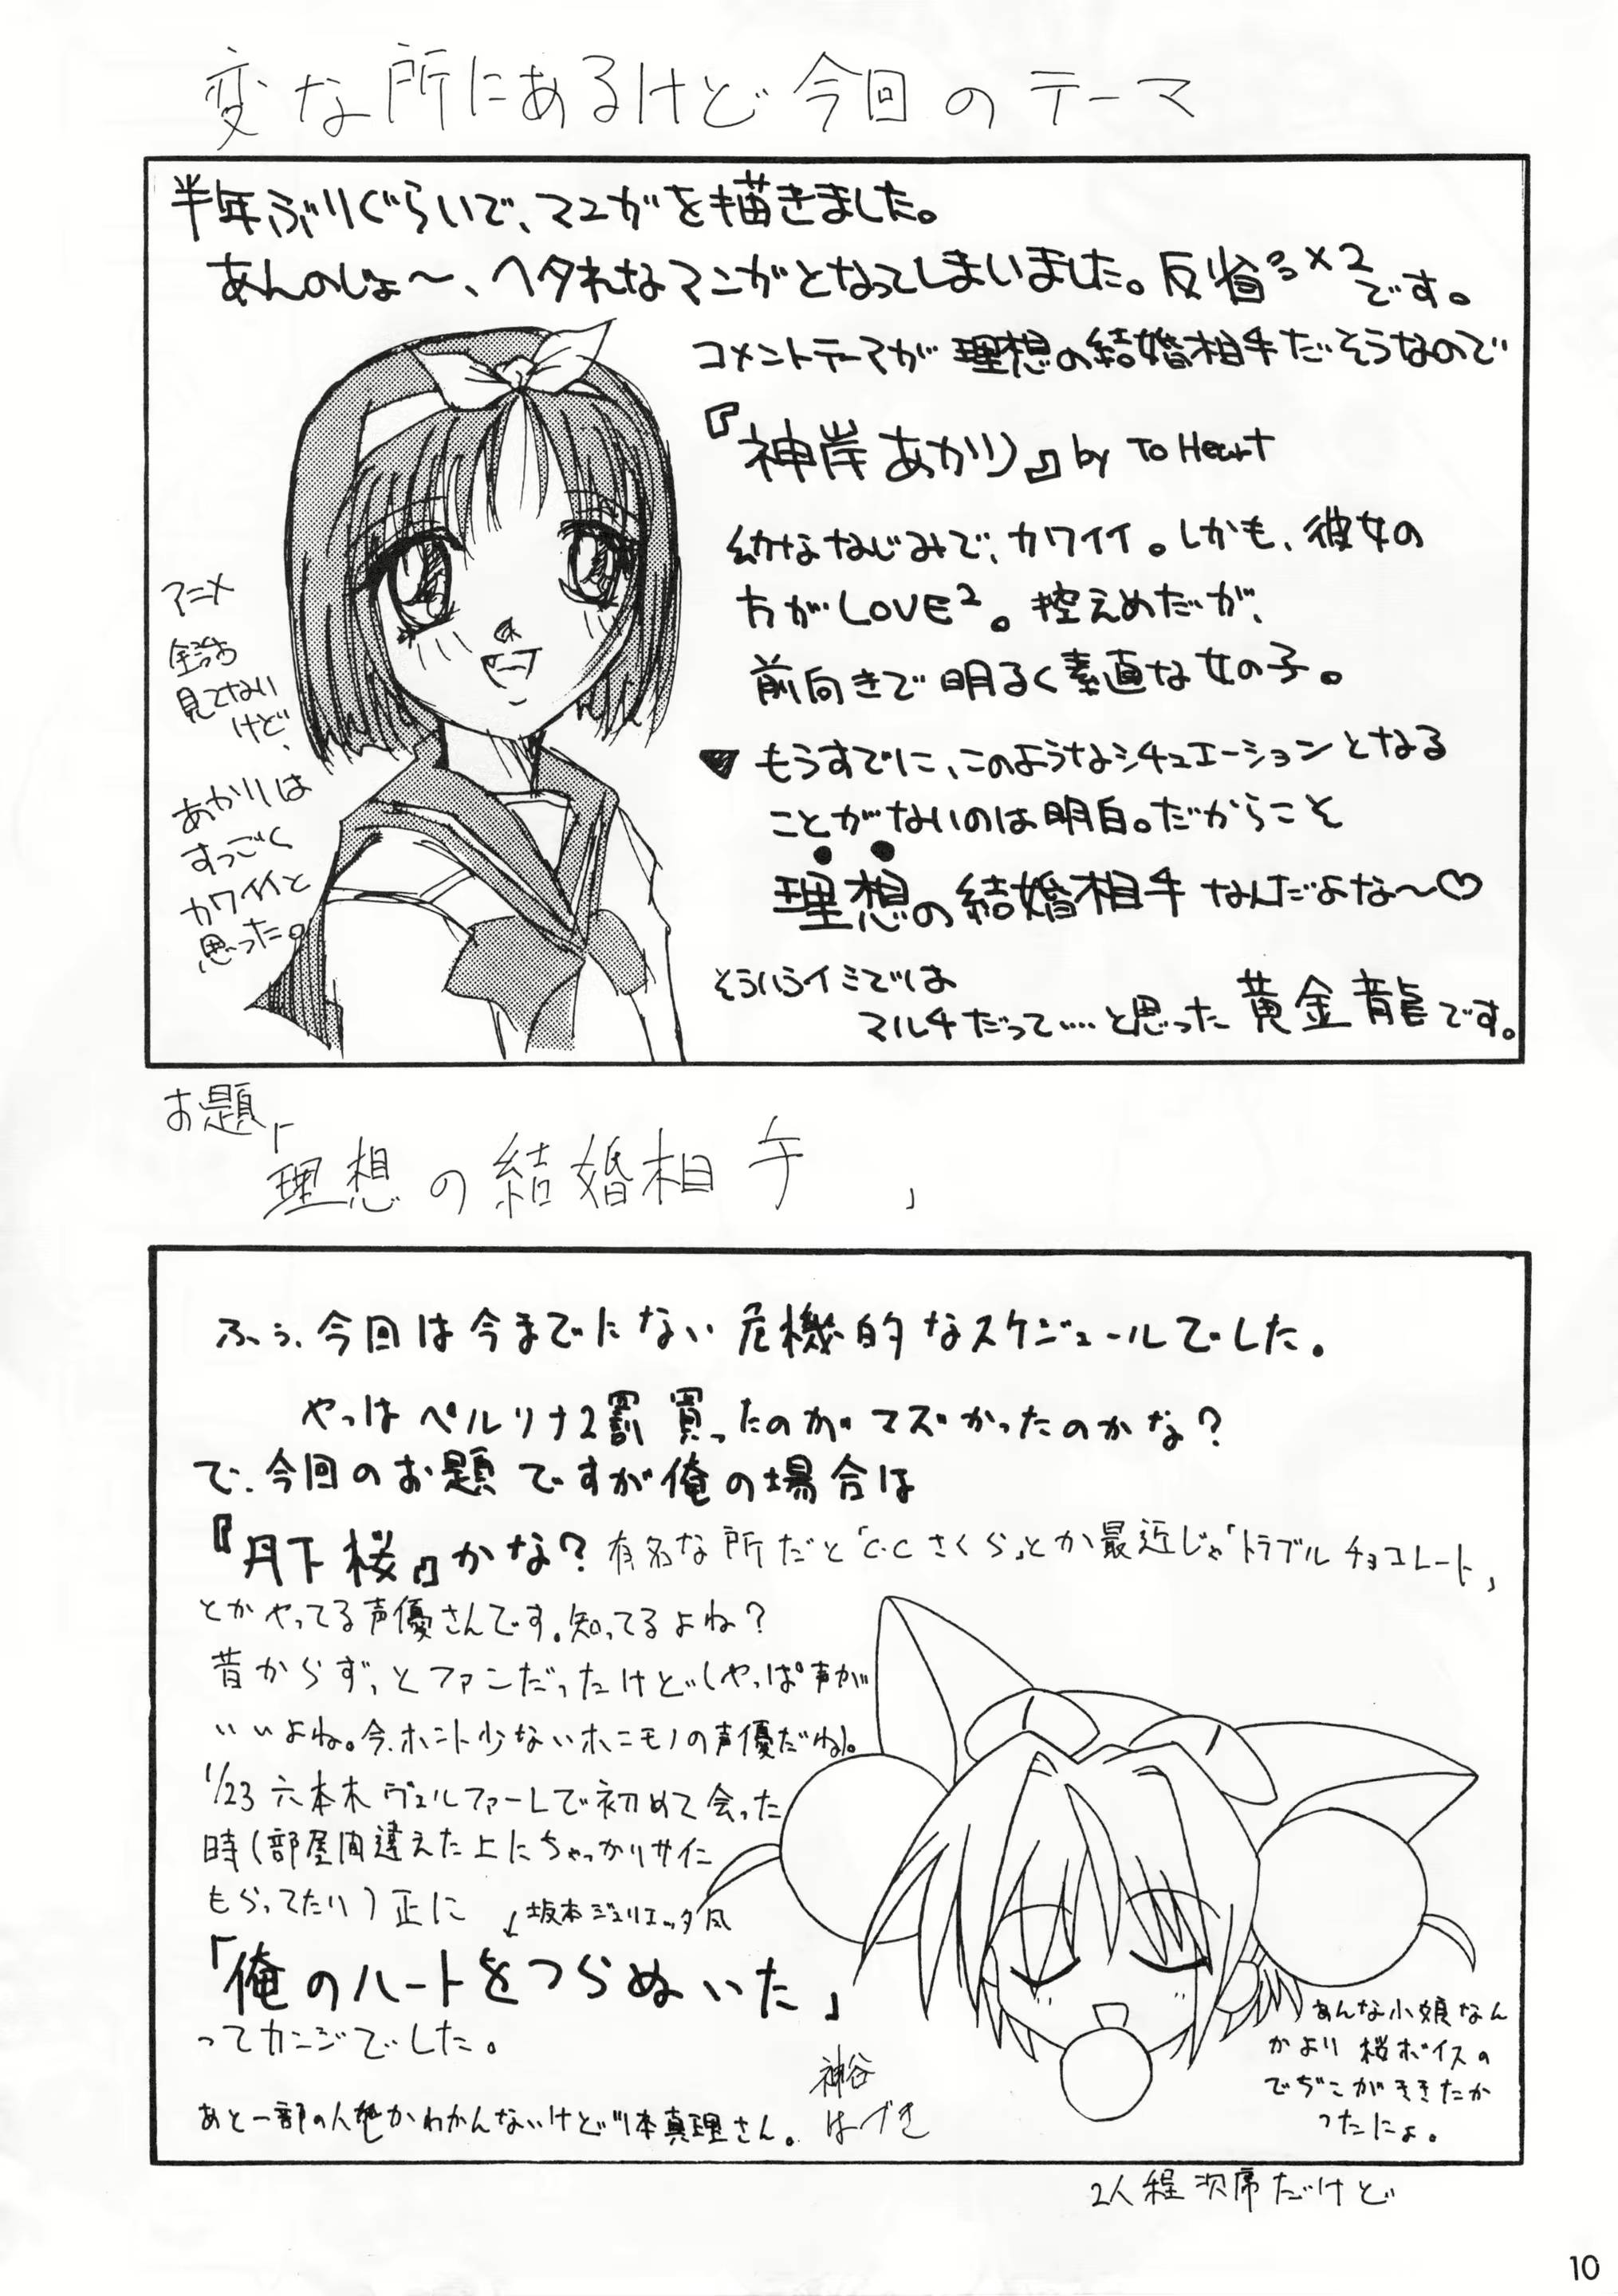 変な所にあるけど今回のテーマ
半年ぶりぐらいで、マンガを描きました。
あんのじょ〜、ヘタれなマンガとなってしまいました。反省×2です。
コメントテーマが理想の結婚相手だそうなので
『神岸あかり』by To Heart
幼ななじみで、カワイイ。しかも、彼女の
方がLOVE²。控えめだが、
前向きで明るく素直な女の子。
♥もうすでに、このようなシチュエーションとなる
ことがないのは明白。だからこそ
理想の結婚相手なんだよな〜♡
そういうイミでは
マルチだって‥‥と思った黄金龍です。
アニメ
全話
見てない
けど、
あかりは
すっごく
カワイイと
思った。
お題
「理想の結婚相手」
ふぅ、今回は今までにない危機的なスケジュールでした。
やっぱペルソナ2罰買ったのがマズかったのかな？
で、今回のお題ですが俺の場合は
『丹下桜』かな？有名な所だと「C.Cさくら」とか最近じゃ「トラブルチョコレート」
とかやってる声優さんです。知ってるよね？
昔からずっとファンだったけど(やっぱ声が
いいよね。今、ホント少ないホンモノの声優だね)。
1/23 六本木ヴェルファーレで初めて会った
時(部屋間違えた上にちゃっかりサイン
もらってたり)正に
↙坂本ジュリエッタ風
「俺のハートをつらぬいた」
ってカンジでした。
あと一部の人しかわかんないけど 本真理さん。
神谷
はづき
あんな小娘なん
かより桜ボイスの
でぢこがききたか
ったにょ。
2人程次席だけど
10